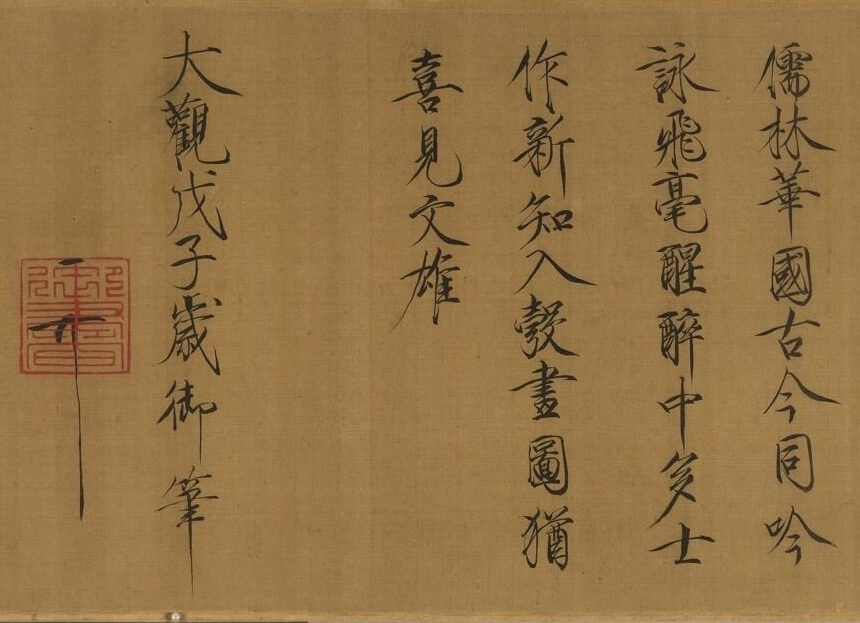 儒林華國古今同吟
詠飛毫醒醉中多士
作新知入彀畫圖猶
喜見文雄
大觀戊子歲御筆
天下一人
御書